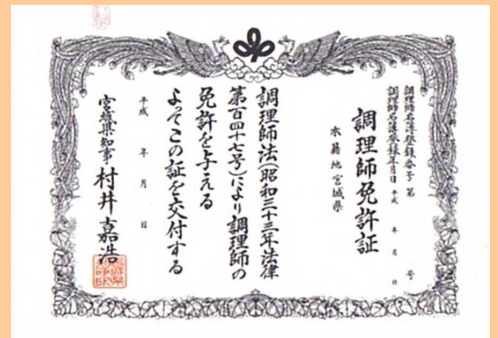 調理師名簿登録番号 第 号
調理師名簿登録年月日 平成 年 月 日
調理師免許証
本籍地 宮城県
調理師法(昭和三十三年法律
第百四十七号)により調理師の
免許を与える
よってこの証を交付する
平成 年 月 日
宮城県知事 村井嘉浩